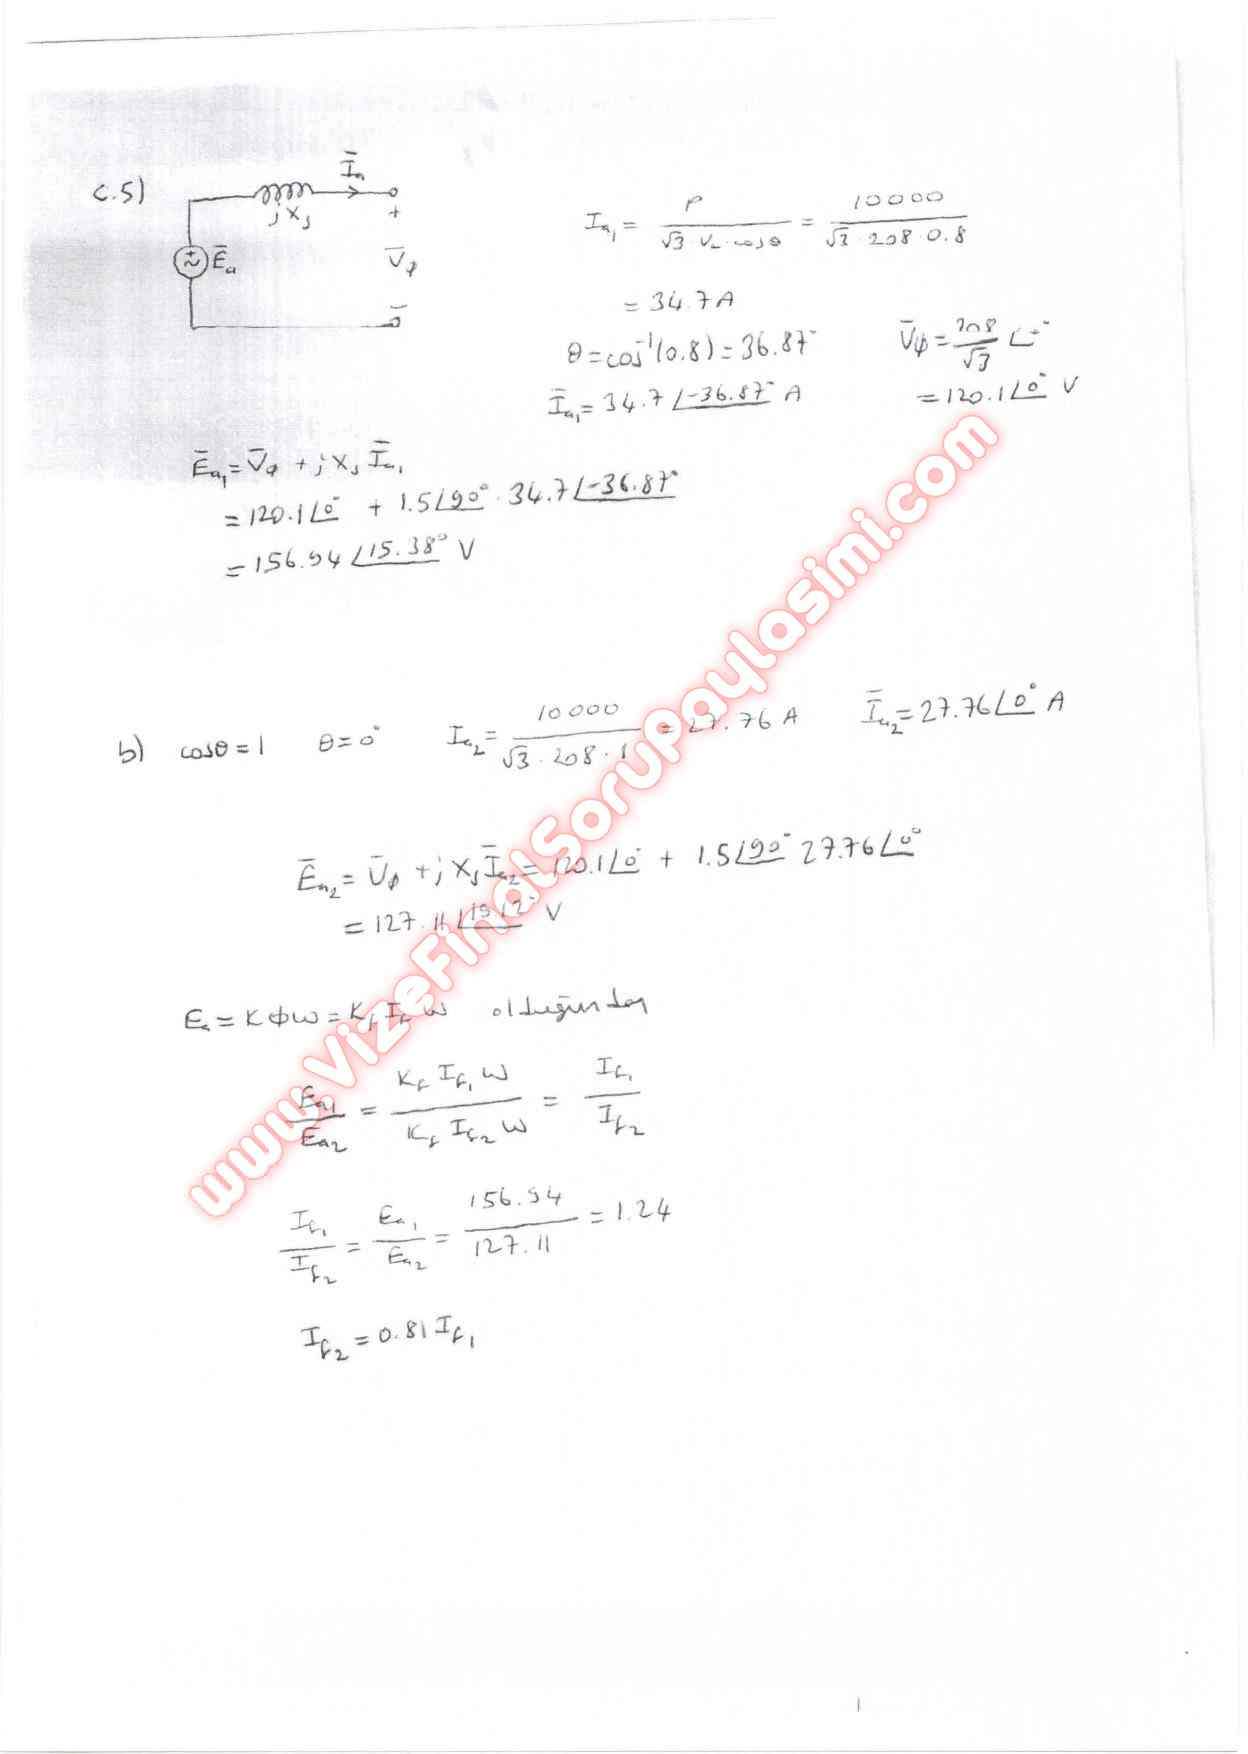 c.5)
Īa
jXs
+
Ēa
V̄φ
−
Ia₁ = P / (√3 · VL · cosθ) = 10000 / (√3 · 208 · 0.8)
= 34.7 A
θ = cos⁻¹(0.8) = 36.87°
V̄φ = 208/√3 ∠0°
Īa₁ = 34.7 ∠-36.87° A
= 120.1 ∠0° V
Ēa₁ = V̄φ + jXs Īa₁
= 120.1∠0° + 1.5∠90° · 34.7∠-36.87°
= 156.94 ∠15.38° V
b) cosθ = 1 θ = 0° Ia₂ = 10000 / (√3 · 208 · 1) = 27.76 A Īa₂ = 27.76 ∠0° A
Ēa₂ = V̄φ + jXs Īa₂ = 120.1∠0° + 1.5∠90° 27.76∠0°
= 127.11 V
Ea = KΦω = Kf If ω olduğundan
Ea₁ / Ea₂ = Kf If₁ ω / Kf If₂ ω = If₁ / If₂
If₁ / If₂ = Ea₁ / Ea₂ = 156.94 / 127.11 = 1.24
If₂ = 0.81 If₁
www.VizeFinalSorupaylasimi.com